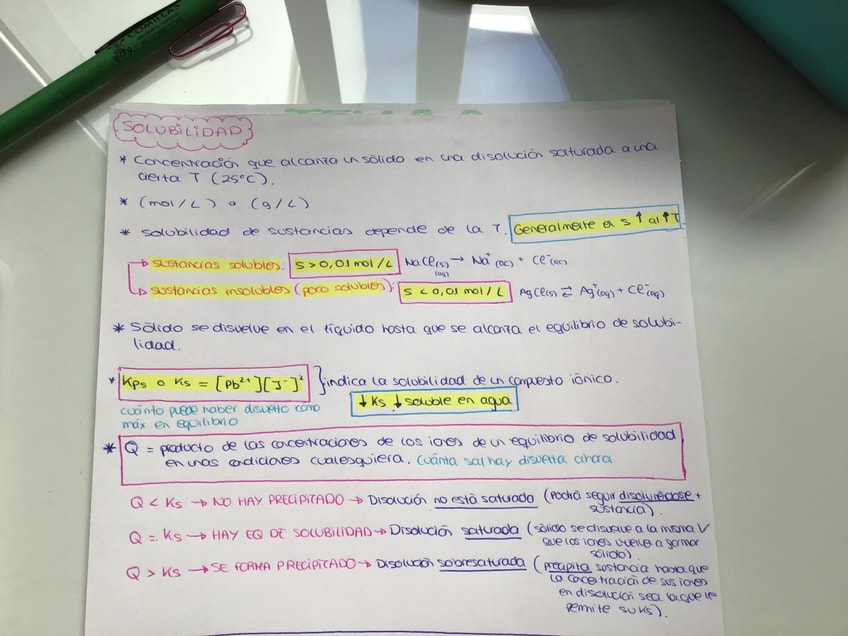 COMILLAS
SOLUBILIDAD
* Concentración que alcanza un sólido en una disolución saturada a una
cierta T (25°C).
* (mol/L) o (g/L)
* Solubilidad de sustancias depende de la T. Generalmente la S ↑ al ↑ T
→ sustancias solubles: S > 0,01 mol/L NaCl(s) → Na⁺(ac) + Cl⁻(ac)
(aq)
↳ sustancias insolubles (poco solubles): S < 0,01 mol/L AgCl(s) ⇄ Ag⁺(aq) + Cl⁻(aq)
* Sólido se disuelve en el líquido hasta que se alcanza el equilibrio de solubi-
lidad.
* Kps o Ks = [Pb²⁺][I⁻]² } indica la solubilidad de un compuesto iónico.
cuánto puede haber disuelto como
máx en equilibrio
↓ Ks ↓ soluble en agua
* Q = producto de las concentraciones de los iones de un equilibrio de solubilidad
en unas condiciones cualesquiera. Cuánta sal hay disuelta ahora
Q < Ks → NO HAY PRECIPITADO → Disolución no está saturada (Podría seguir disolviéndose +
sustancia).
Q = Ks → HAY EQ DE SOLUBILIDAD → Disolución saturada (sólido se disuelve a la misma V
que los iones vuelve a formar
sólido).
Q > Ks → SE FORMA PRECIPITADO → Disolución sobresaturada (precipita sustancia hasta que
la concentración de sus iones
en disolución sea la que le
permite su Ks).